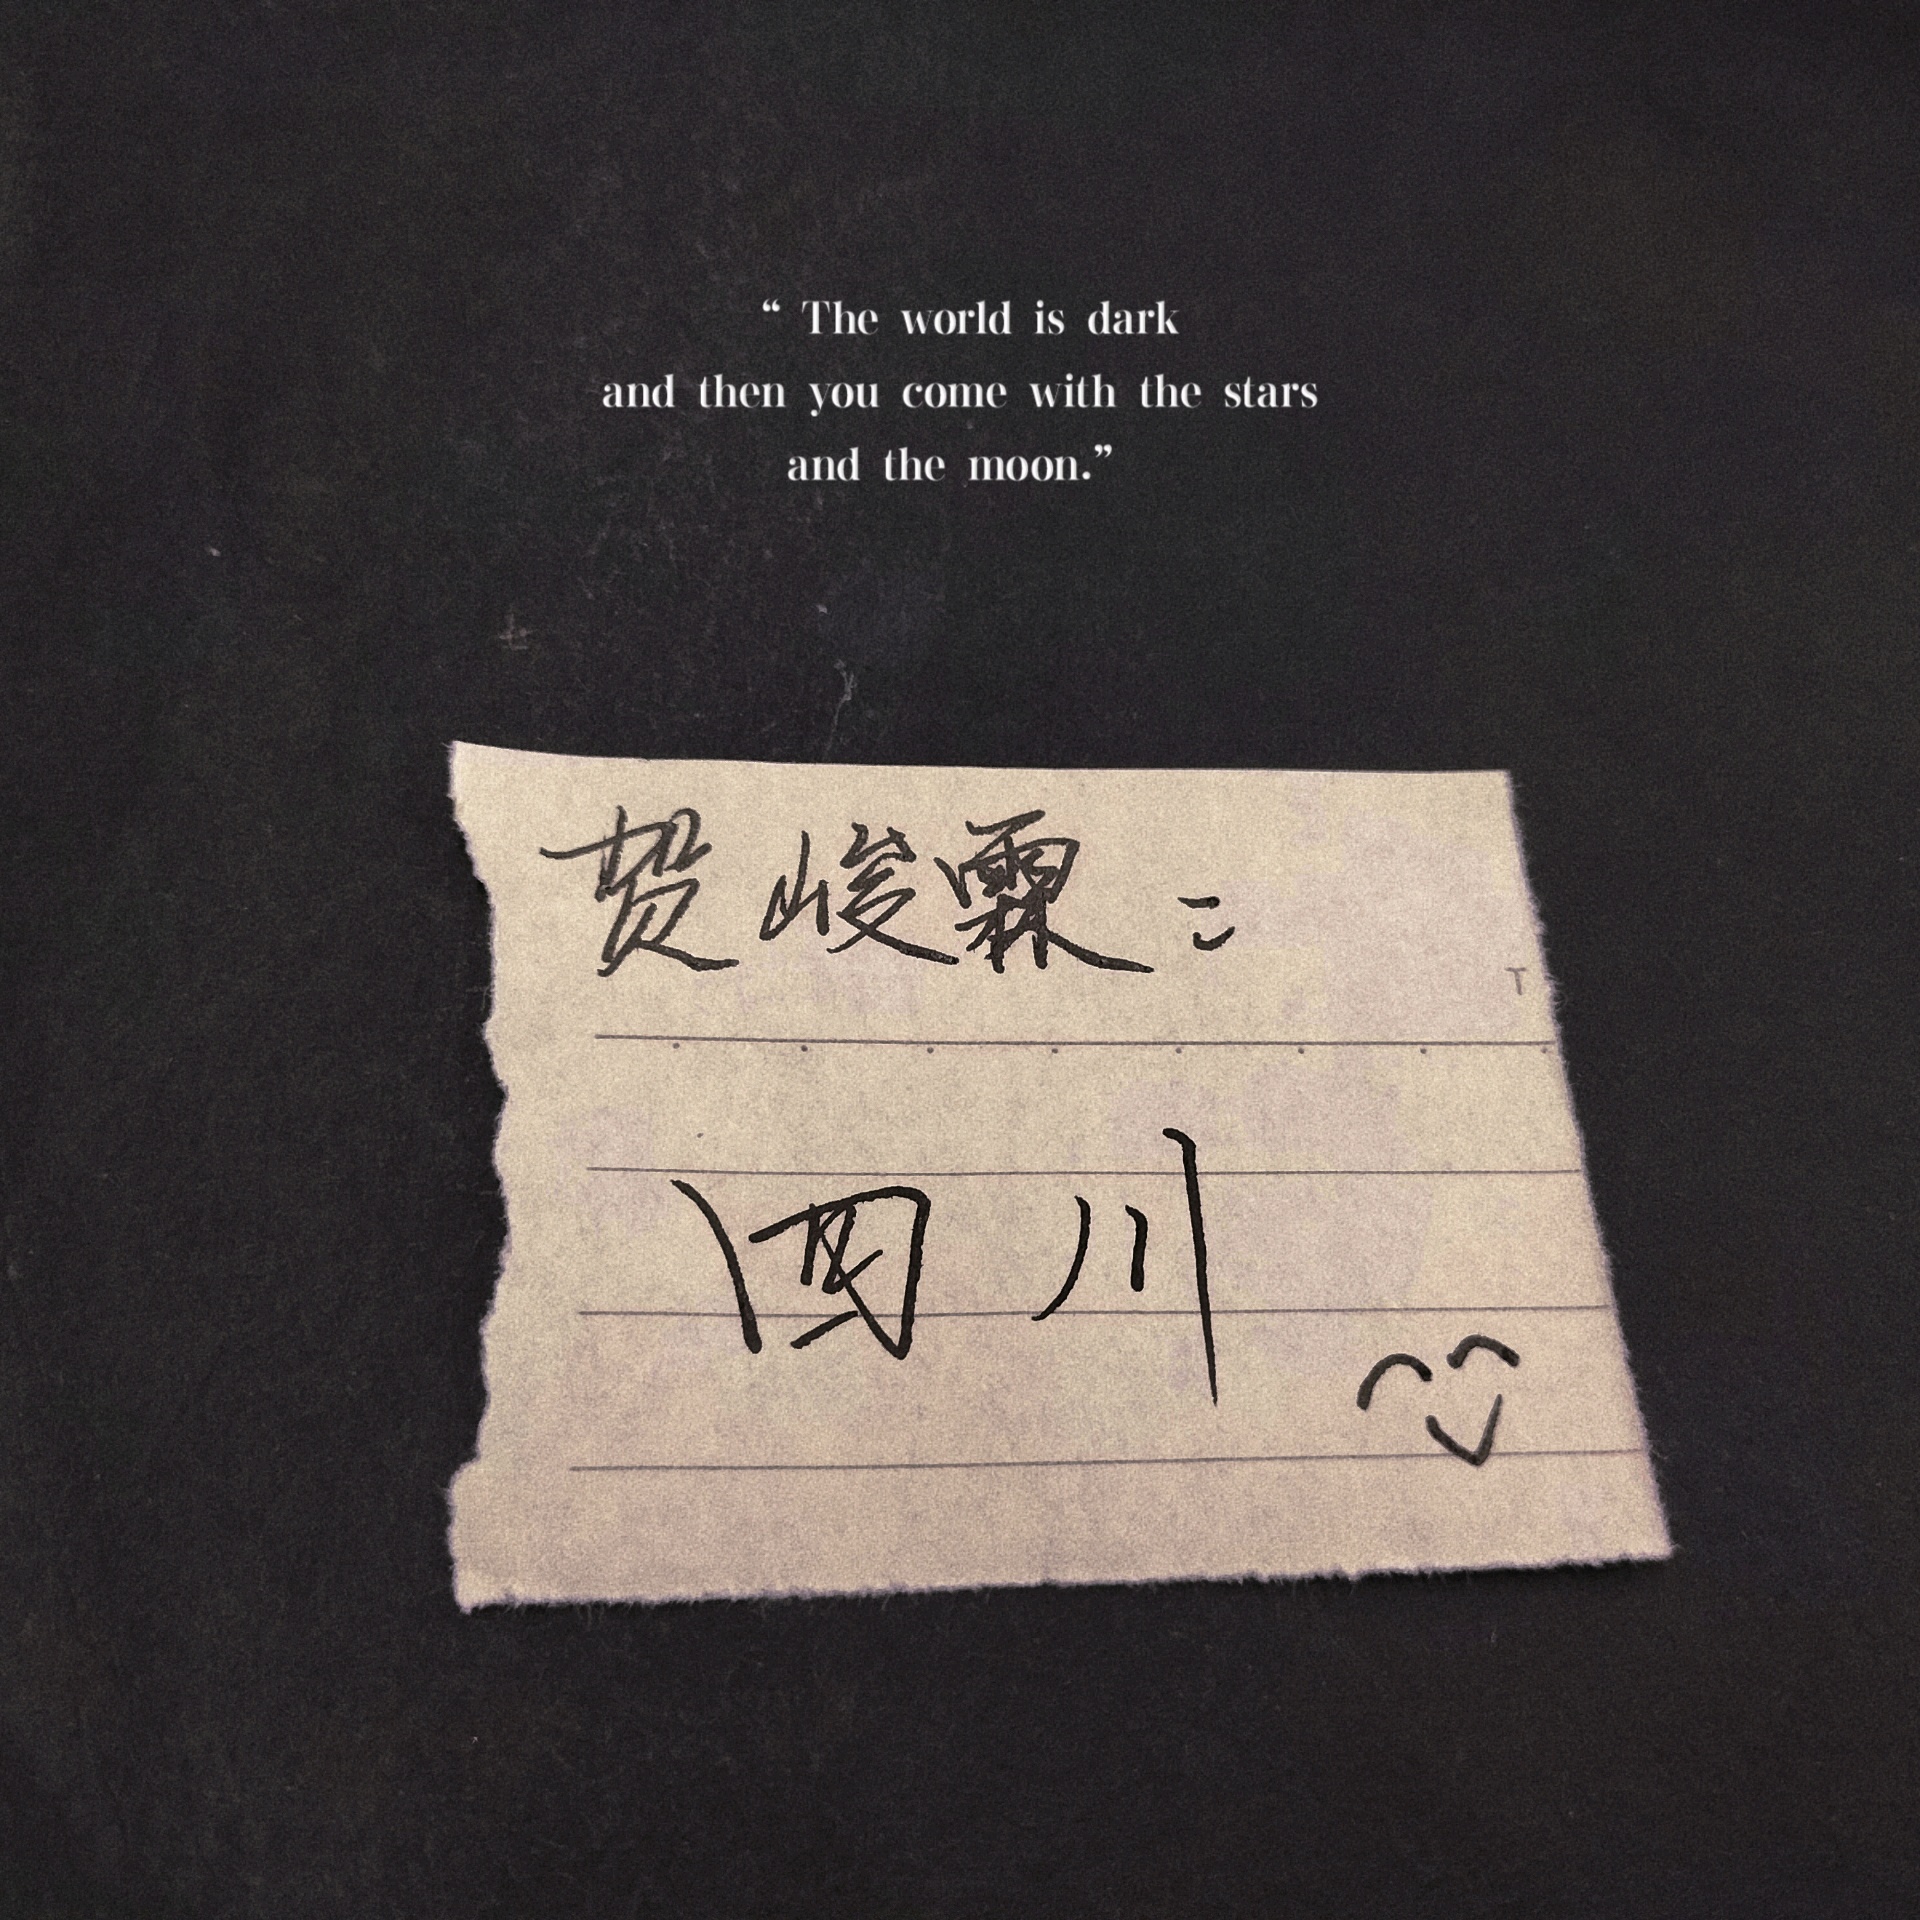 “ The world is dark
and then you come with the stars
and the moon.”
贺峻霖：
T
四川